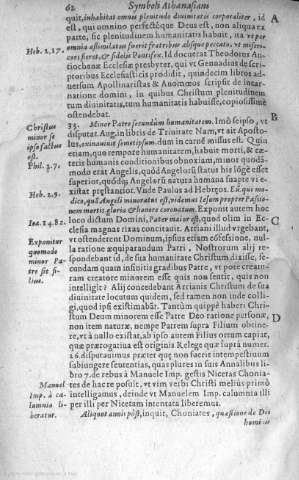 62 Symboli Athanasiani
quit, inhabitat omnis plenitudo diuinitatis corporaliter, id A
est, qui omnino perfectóque Deus est, non aliqua ex
parte, sic plenitudinem humanitatis habuit, ita vt per
Heb. 2. 17. omnia assimilatus fuerit fratribus absque peccato, vt miseri-
cors fieret, & fidelis Pontifex. Id docuerat Theodorus An-
tiochenæ Ecclesiæ presbyter, qui vt Gennadius de Scri-
ptoribus Ecclesiasticis prodidit, quindecim libros ad-
uersum Apollinaristas & Anomœos scripsit de incar-
natione domini, in quibus Christum plenitudinem
tum diuinitatis, tum humanitatis habuisse, copiosissimè
ostendebat. B
Christus minor se ipso factus est. 33. Minor Patre secundum humanitatem. Imò seipso, vt
disputat Aug. in libris de Trinitate Nam, vt ait Aposto-
lus, exinaniuit semetipsum, dum in carne missus est. Quin
Phil. 2. 7. etiam, quo tempore humanitatem, habuit morti, & cæ-
teris humanis conditionibus obnoxiam, minor quodã-
modo erat Angelis, quòd Angelorũ status his lõgè esset
superior, quòdq́; Angelorũ natura humana suapte vi ex-
Heb. 2. 9. istat præstantior. Vnde Paulus ad Hebræos. Eũ qui mo-
dico, quã Angeli minoratus est, videmus Iesum propter passio-
nem mortis gloria & honore coronatum. Exponit autem hoc
Ioa. 14. 28. loco dictum Domini, Pater maior est, quod olim in Ec- C
clesia magnas rixas concitauit. Arriani illud vrgebant,
Exponitur quomodo minor Patre sit filius. vt ostenderent Dominum, ipsius etiam essẽtione, nul-
la ratione æquiparandum Patri; Nostrorum alij re-
spondebant id, de sua humanitate Christum dixisse, se-
cundum quam infinitis gradibus Patre, vt pote creato-
rem creante minorem esse quis non sentit, quis non
intelligit? Alij concedebant Arrianis Christum de sua
diuinitate locutum quidem, sed tamen non inde colli-
gi, quod ipsi existimabãt. Tantùm quippe haberi Chri-
stum Deum minorem esse Patre Deo ratione personæ, D
non item naturæ. nempe Patrem supra Filium obtine-
re, vt à nullo existat, ab ipso autem Filius ortum capiat,
quæ prærogatiua est originis. Relege quæ suprà numer.
26. disputauimus præter quę non fuerit intempestiuum
subiungere sententias, quas plures in suis Annalibus libri
lib. 7. de rebus à Manuele Imp. gestis Nicetas Chonia-
Manuel Imp. à calumnia liberatur. tes de hac re posuit, vt vim verbi Christi melius primò
intelligamus, deinde vt Manuelem Imp. calumnia illi
per illi per Nicetam intentata liberemus.
Aliquot annis pòst, inquit, Choniates, quæstione de Dei
homi-